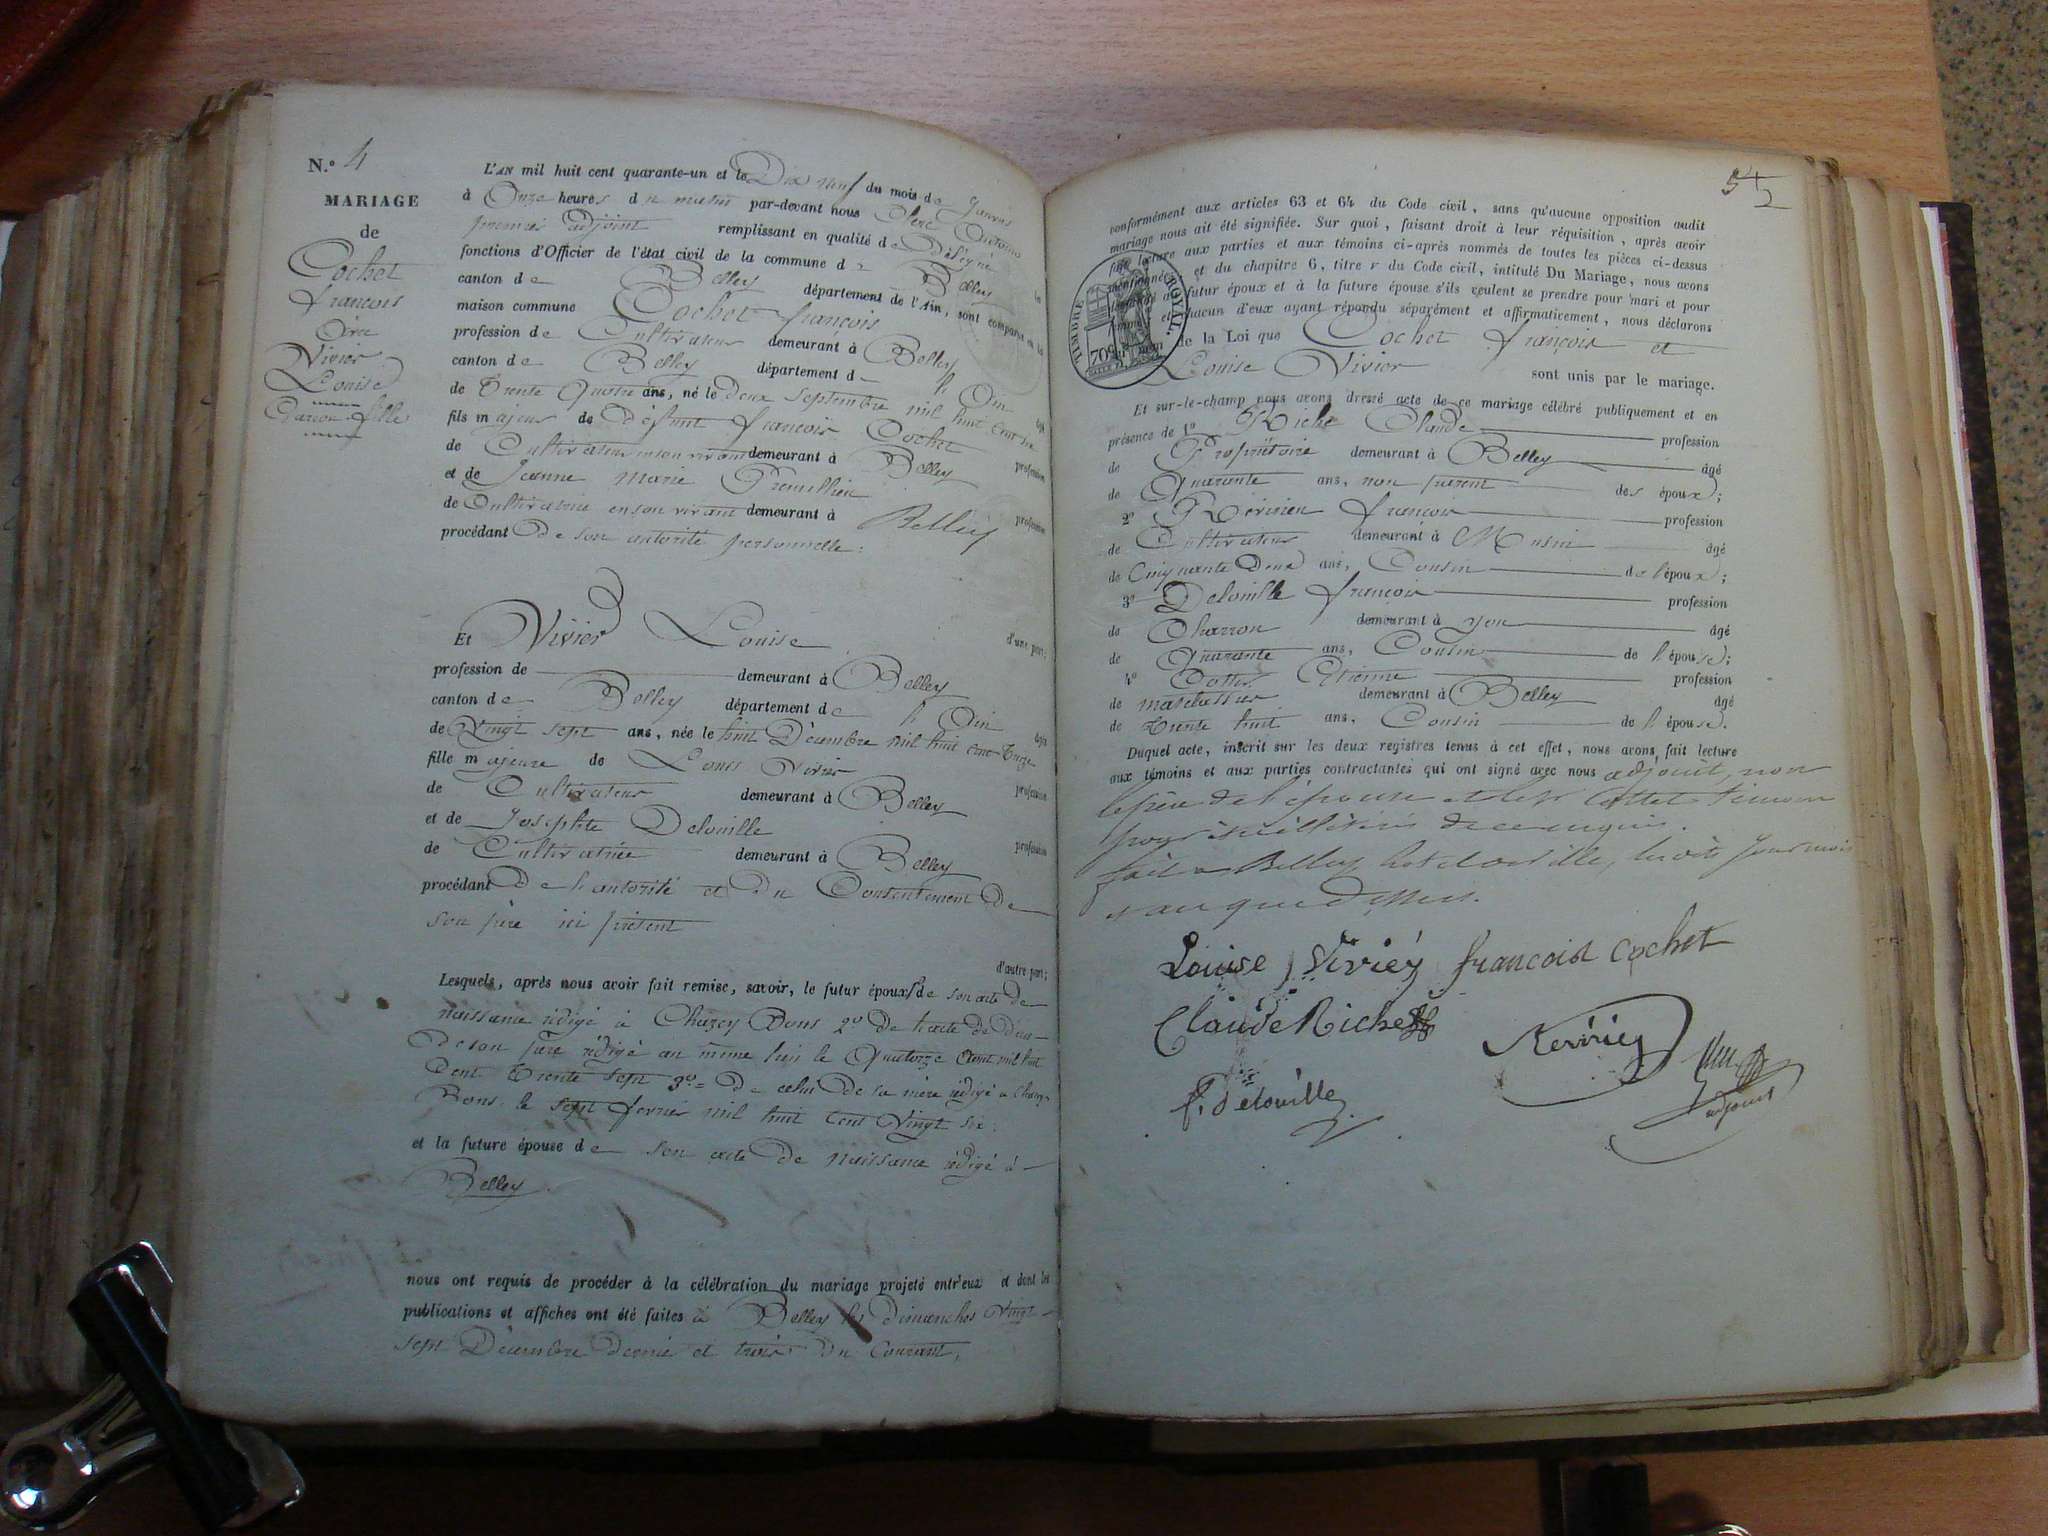 N.° 4
MARIAGE
de
Cochet
françois
Avec
Vivier
Louise
Garçon fille
L'AN mil huit cent quarante-un et le Dix neuf du mois de Janvier
à Onze heures du matin par-devant nous Antoine
premier adjoint remplissant en qualité de Délégué les
fonctions d'Officier de l'état civil de la commune de Belley
canton de Belley département de l'Ain, sont comparus en la
maison commune Cochet françois
profession de Cultivateur demeurant à Belley
canton de Belley département de l'Ain
de Trente Quatre ans, né le deux Septembre mil huit cent six âgé
fils majeur de Défunt françois Cochet
de Cultivateur en son vivant demeurant à Belley profession
et de Jeanne Marie Premillieu
de Cultivatrice en son vivant demeurant à Belley profession
procédant De son autorité personnelle.
d'une part;
Et Vivier Louise
profession de demeurant à Belley
canton de Belley département de l'Ain
de Vingt sept ans, née le huit Décembre mil huit cent treize âgée
fille majeure de Louis Vivier
de Cultivateur demeurant à Belley profession
et de Josephte Delouille
de Cultivatrice demeurant à Belley profession
procédant De l'autorité et Du Consentement De
son père ici présent
d'autre part;
Lesquels, après nous avoir fait remise, savoir, le futur époux 1° de son acte De
naissance rédigé à Chazey Bons 2° De l'acte De Décès
De son père rédigé au même lieu le Quatorze mil huit
Cent Trente sept 3° De celui De sa mère rédigé à Chazey
Bons le sept février mil huit Cent Vingt six.
et la future épouse de son acte De naissance rédigé à
Belley.
nous ont requis de procéder à la célébration du mariage projeté entr'eux et dont les
publications et affiches ont été faites à Belley les Dimanches Vingt
sept Décembre dernier et trois Du Courant,
54
2
conformément aux articles 63 et 64 du Code civil, sans qu'aucune opposition audit
mariage nous ait été signifiée. Sur quoi, faisant droit à leur réquisition, après avoir
fait lecture aux parties et aux témoins ci-après nommés de toutes les pièces ci-dessus
mentionnées, et du chapitre 6, titre v du Code civil, intitulé Du Mariage, nous avons
demandé au futur époux et à la future épouse s'ils veulent se prendre pour mari et pour
femme; et chacun d'eux ayant répondu séparément et affirmativement, nous déclarons
au nom de la Loi que Cochet françois et
Louise Vivier sont unis par le mariage.
TIMBRE ROYAL.
70c
Et sur-le-champ nous avons dressé acte de ce mariage célébré publiquement et en
présence de 1° Riche Claude profession
de Propriétaire demeurant à Belley âgé
de Quarante ans, non parent des époux;
2° françois profession
de Cultivateur demeurant à Musin âgé
de Cinquante Deux ans, Cousin de l'époux;
3° Delouille françois profession
de Charron demeurant à Yon âgé
de Quarante ans, Cousin de l'épouse;
4° Cottet Etienne profession
de demeurant à Belley âgé
de Trente huit ans, Cousin de l'épouse.
Duquel acte, inscrit sur les deux registres tenus à cet effet, nous avons fait lecture
aux témoins et aux parties contractantes qui ont signé avec nous adjoint, non
le père de l'épouse et le Sr Cottet témoin
pour être illitérés de ce enquis.
fait à Belley, hotel de ville, lesdits jour mois
et an que dessus.
Louise Vivier françois cochet
Claude Riche
f. delouille
adjoint